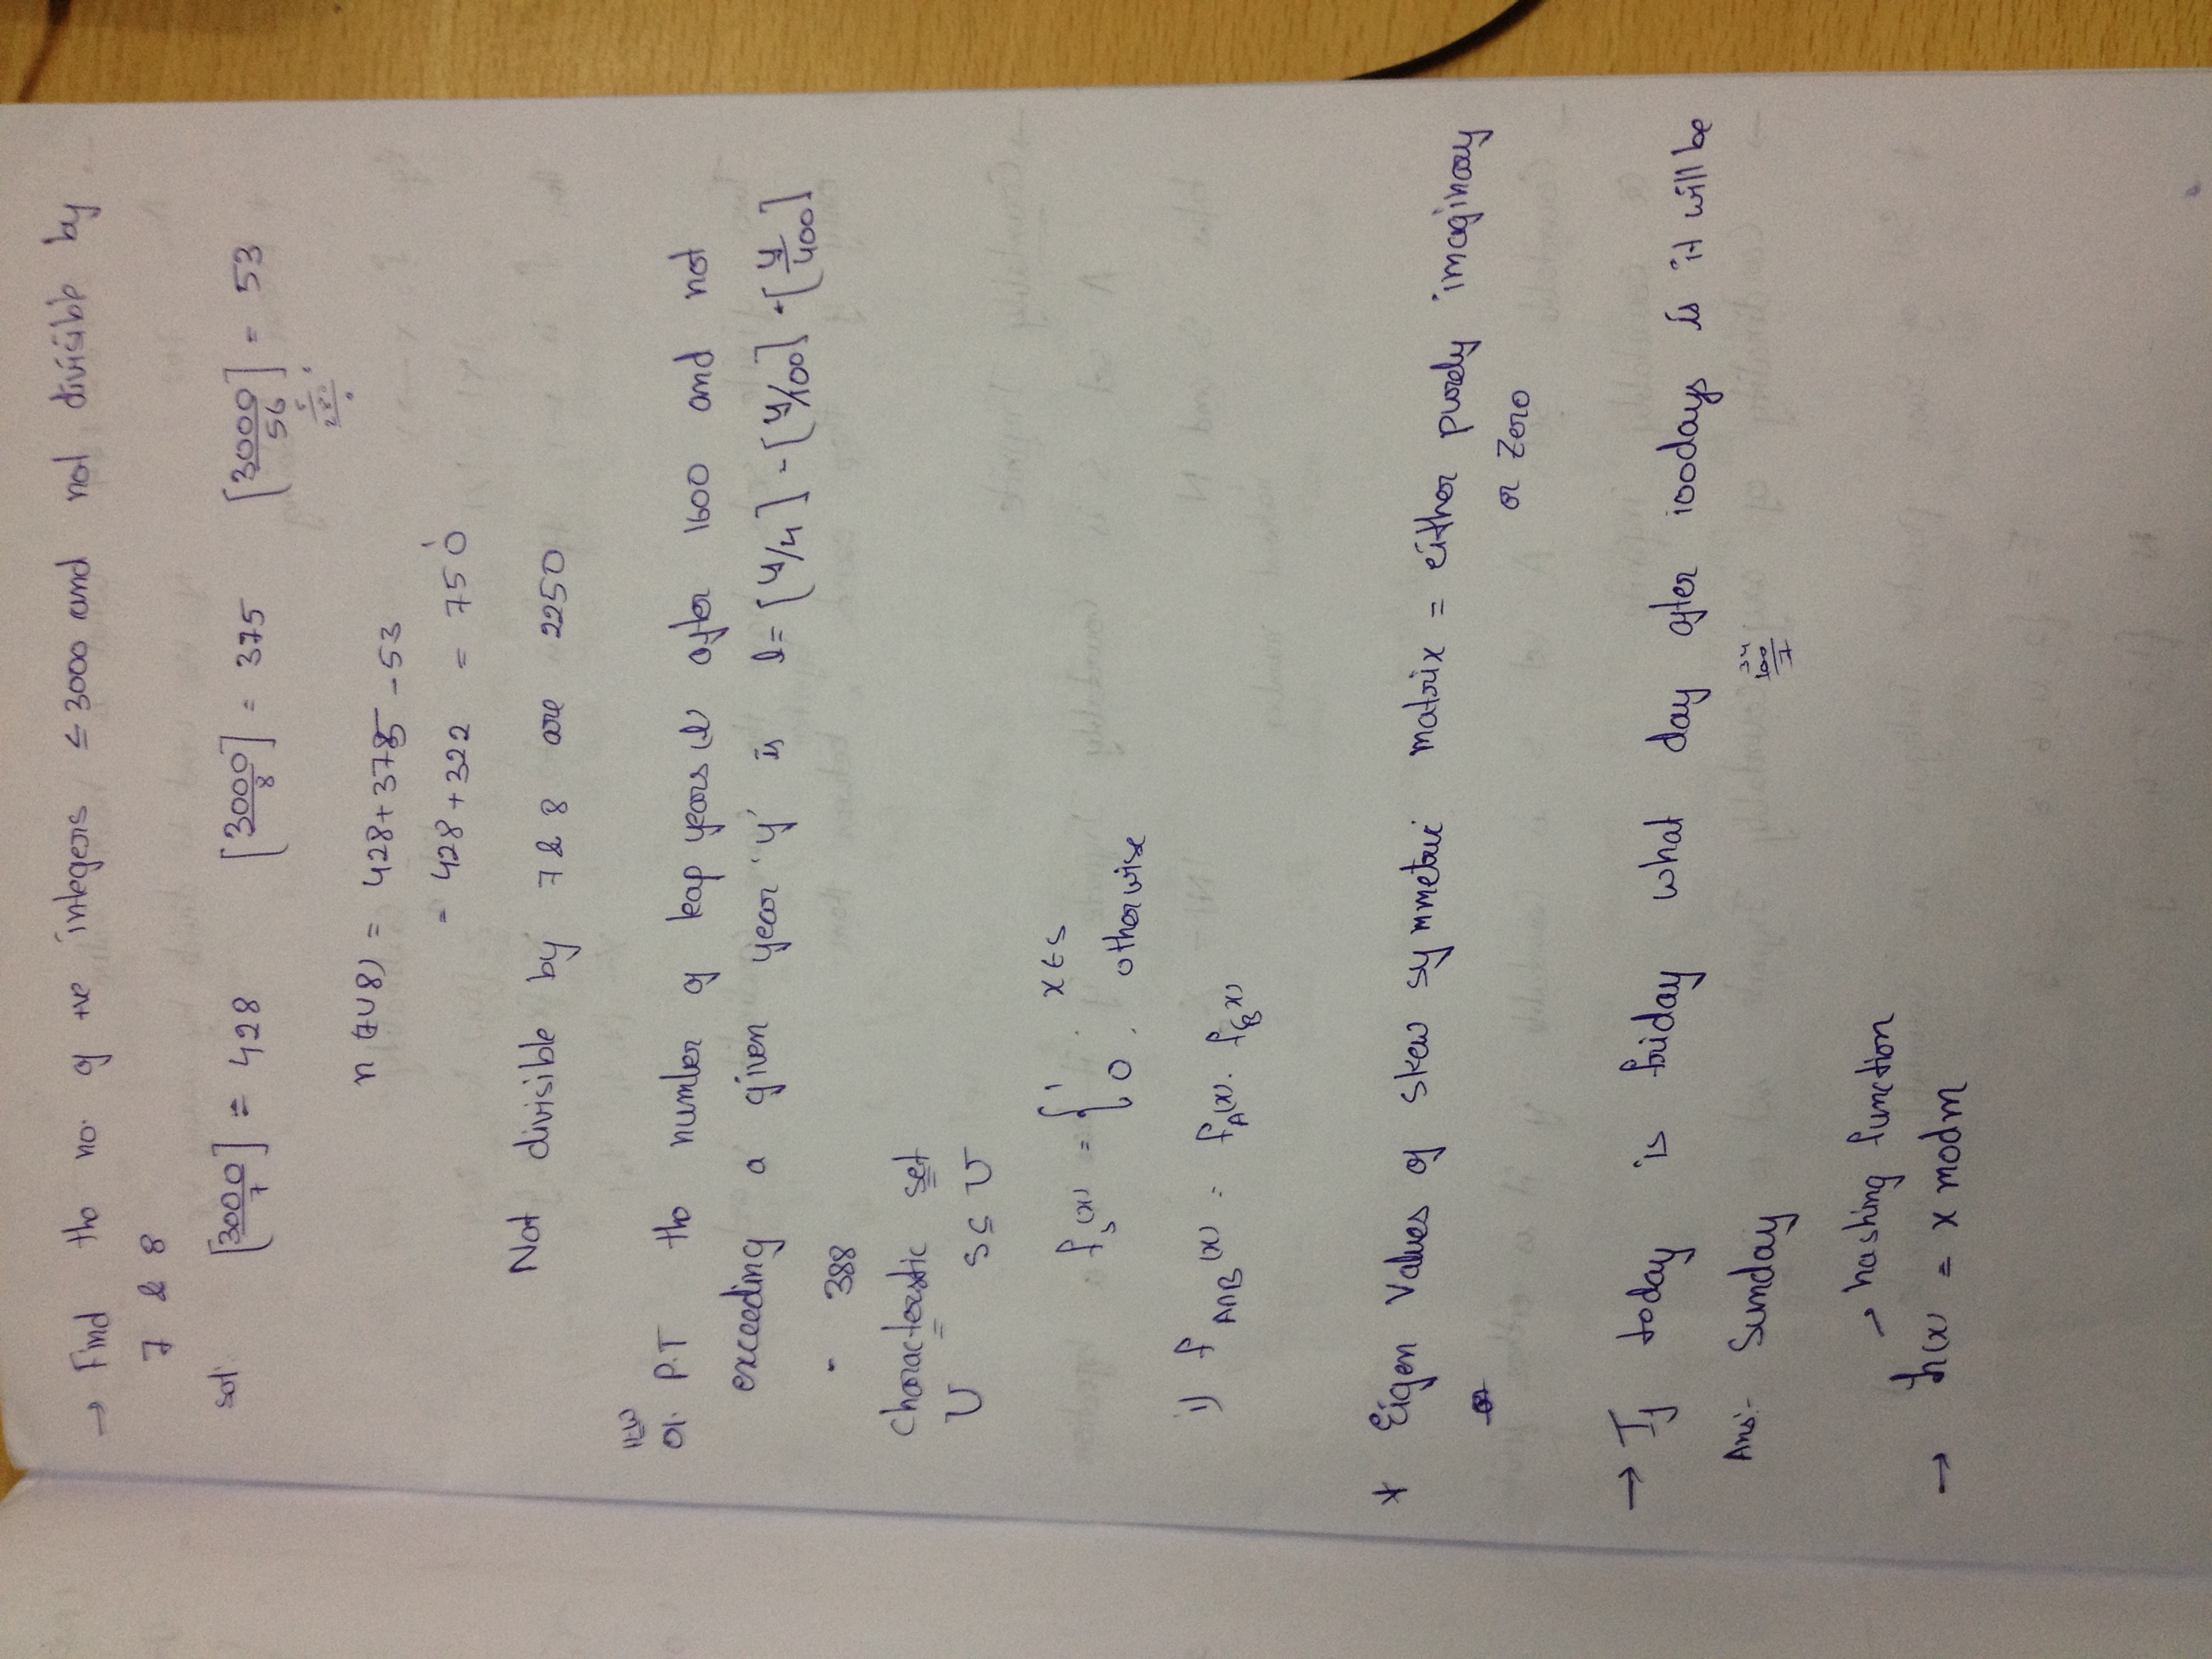 → Find the no. of +ve integers ≤ 3000 and not divisible by
7 & 8
sol: [3000/7] = 428 [3000/8] = 375 [3000/56] = 53
n(7∪8) = 428+375 - 53
= 428+322 = 750
Not divisible by 7 & 8 are 2250
HW
01. P.T the number of leap years (l) after 1600 and not
exceeding a given year 'y' is l = [y/4] - [y/100] + [y/400]
- 388
characteristic set
U S ⊆ U
f_s(x) = { 1 , x ∈ S
0 , otherwise
i) f_A∩B (x) = f_A(x) . f_B(x)
* Eigen values of skew symmetric matrix = either purely imaginary
or zero
→ If today is friday what day after 100days is it will be
Ans:- Sunday 100/7
→ hashing function
→ h(x) = x mod m